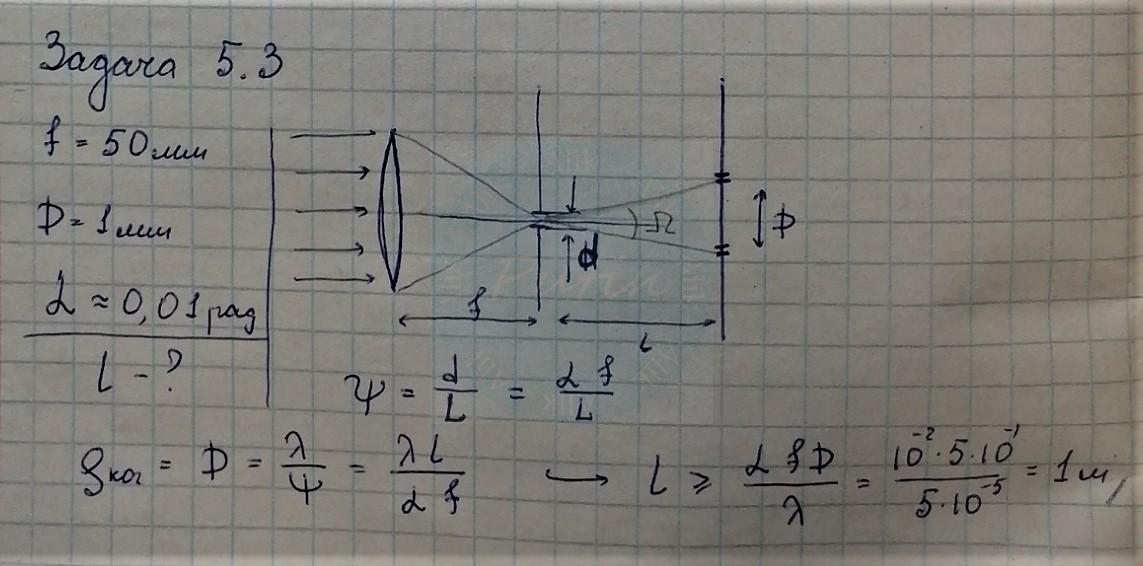 Задача 5.3
f = 50 мм
D = 1 мм
α ≈ 0,01 рад
L - ?
Ω
D
d
f
L
Ψ = d/L = α f/L
ρког = D = λ/Ψ = λ L/α f → L ⩾ α f D/λ = 10⁻²·5·10⁻¹/5·10⁻⁵ = 1 м